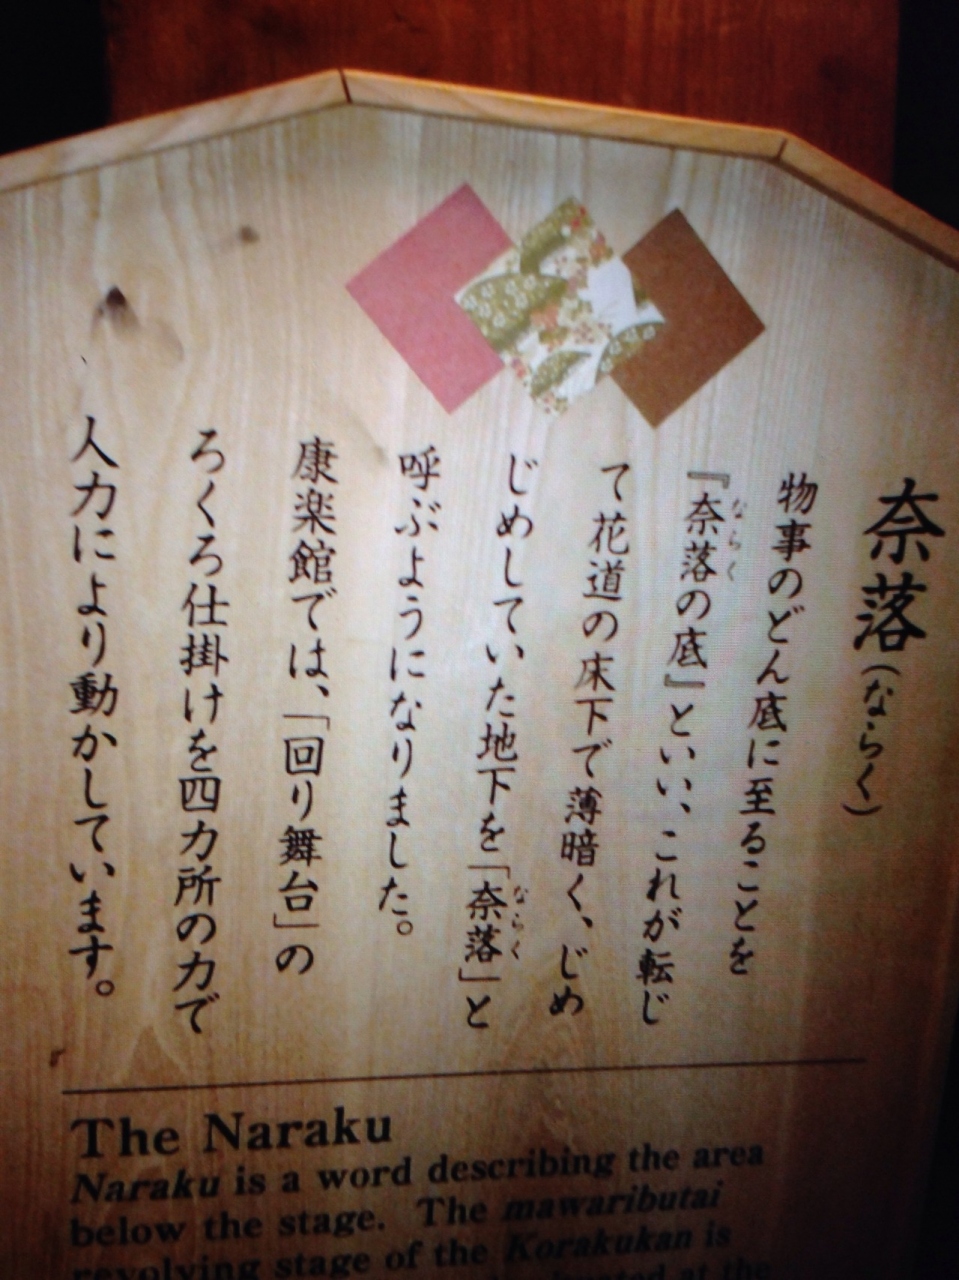 奈落(ならく)
物事のどん底に至ることを
『奈落の底』といい、これが転じ
ならく
て花道の床下で薄暗く、じめ
じめしていた地下を「奈落」と
ならく
呼ぶようになりました。
康楽館では、「回り舞台」の
ろくろ仕掛けを四カ所の力で
人力により動かしています。
The Naraku
Naraku is a word describing the area
below the stage. The mawaributai
revolving stage of the Korakukan is
at the